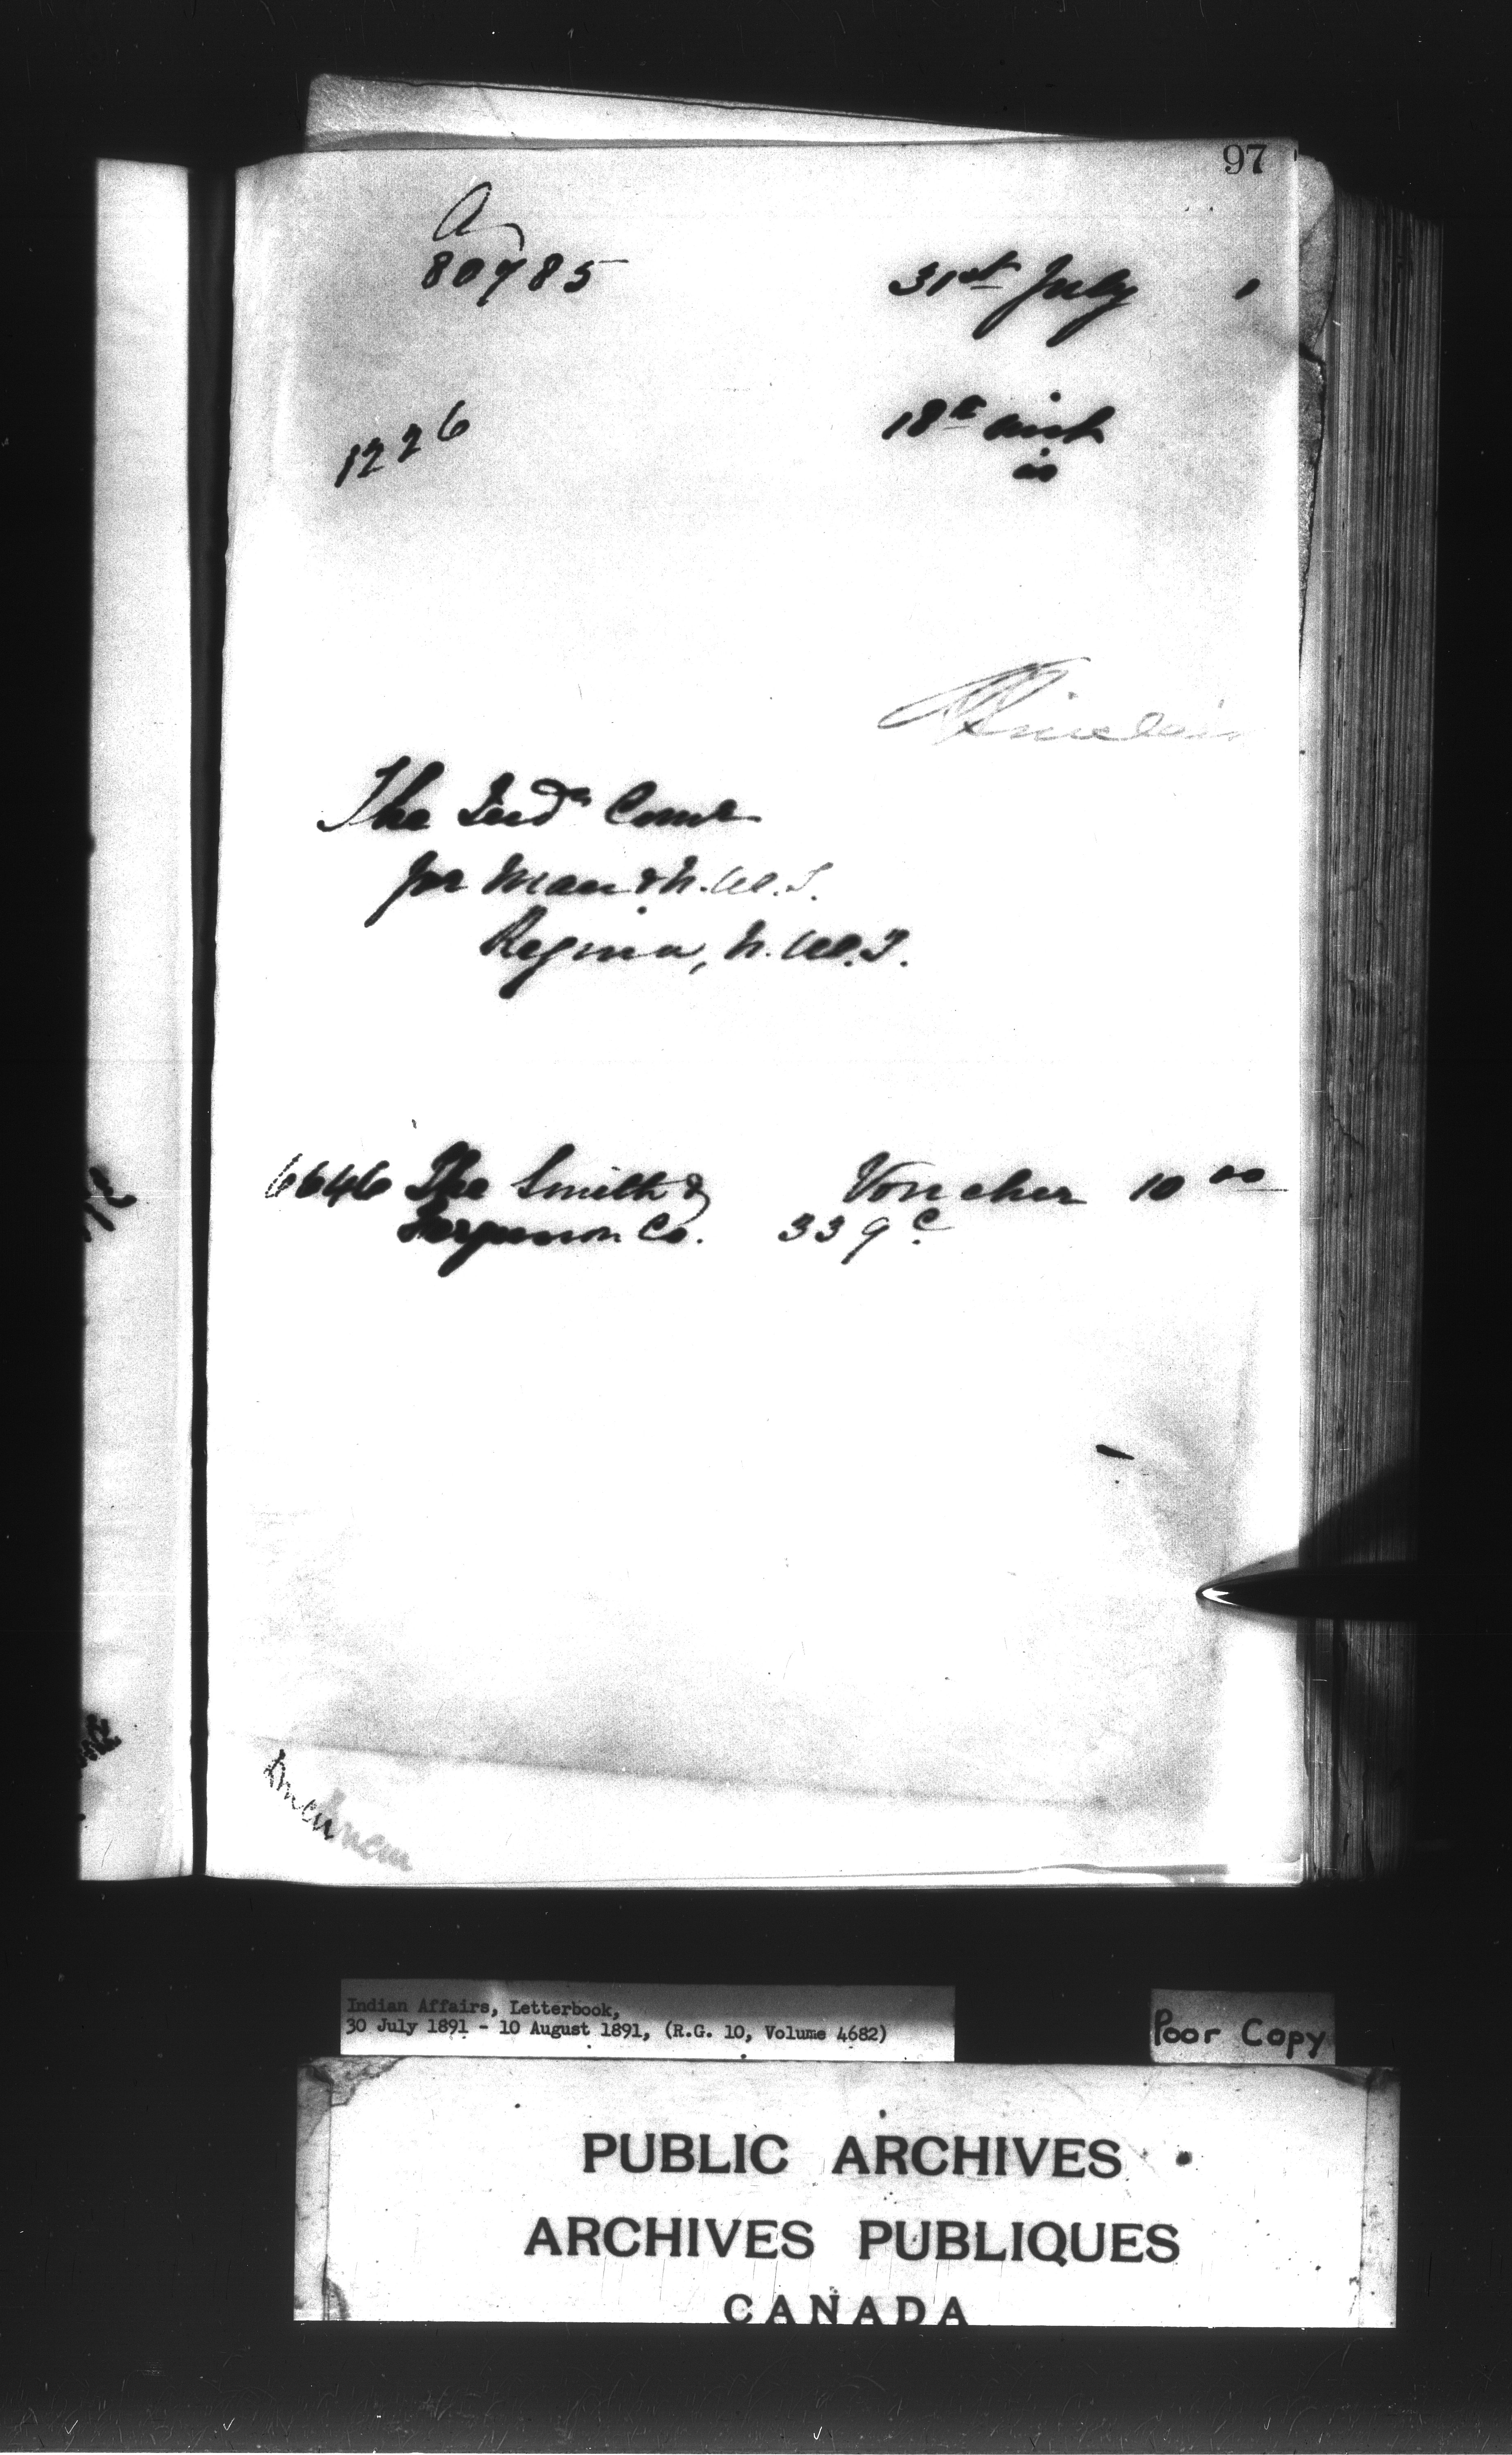 97
A
80785
31st July 1
1226
18th inst
is
RSinclair
The Ind'n Comr
for Man & N.W.T.
Regina, N.W.T.
6646 The Smith & Voucher 10 00
Ferguson Co. 339 c.
Indian Affairs, Letterbook,
30 July 1891 - 10 August 1891, (R.G. 10, Volume 4682)
Poor Copy
PUBLIC ARCHIVES
ARCHIVES PUBLIQUES
CANADA